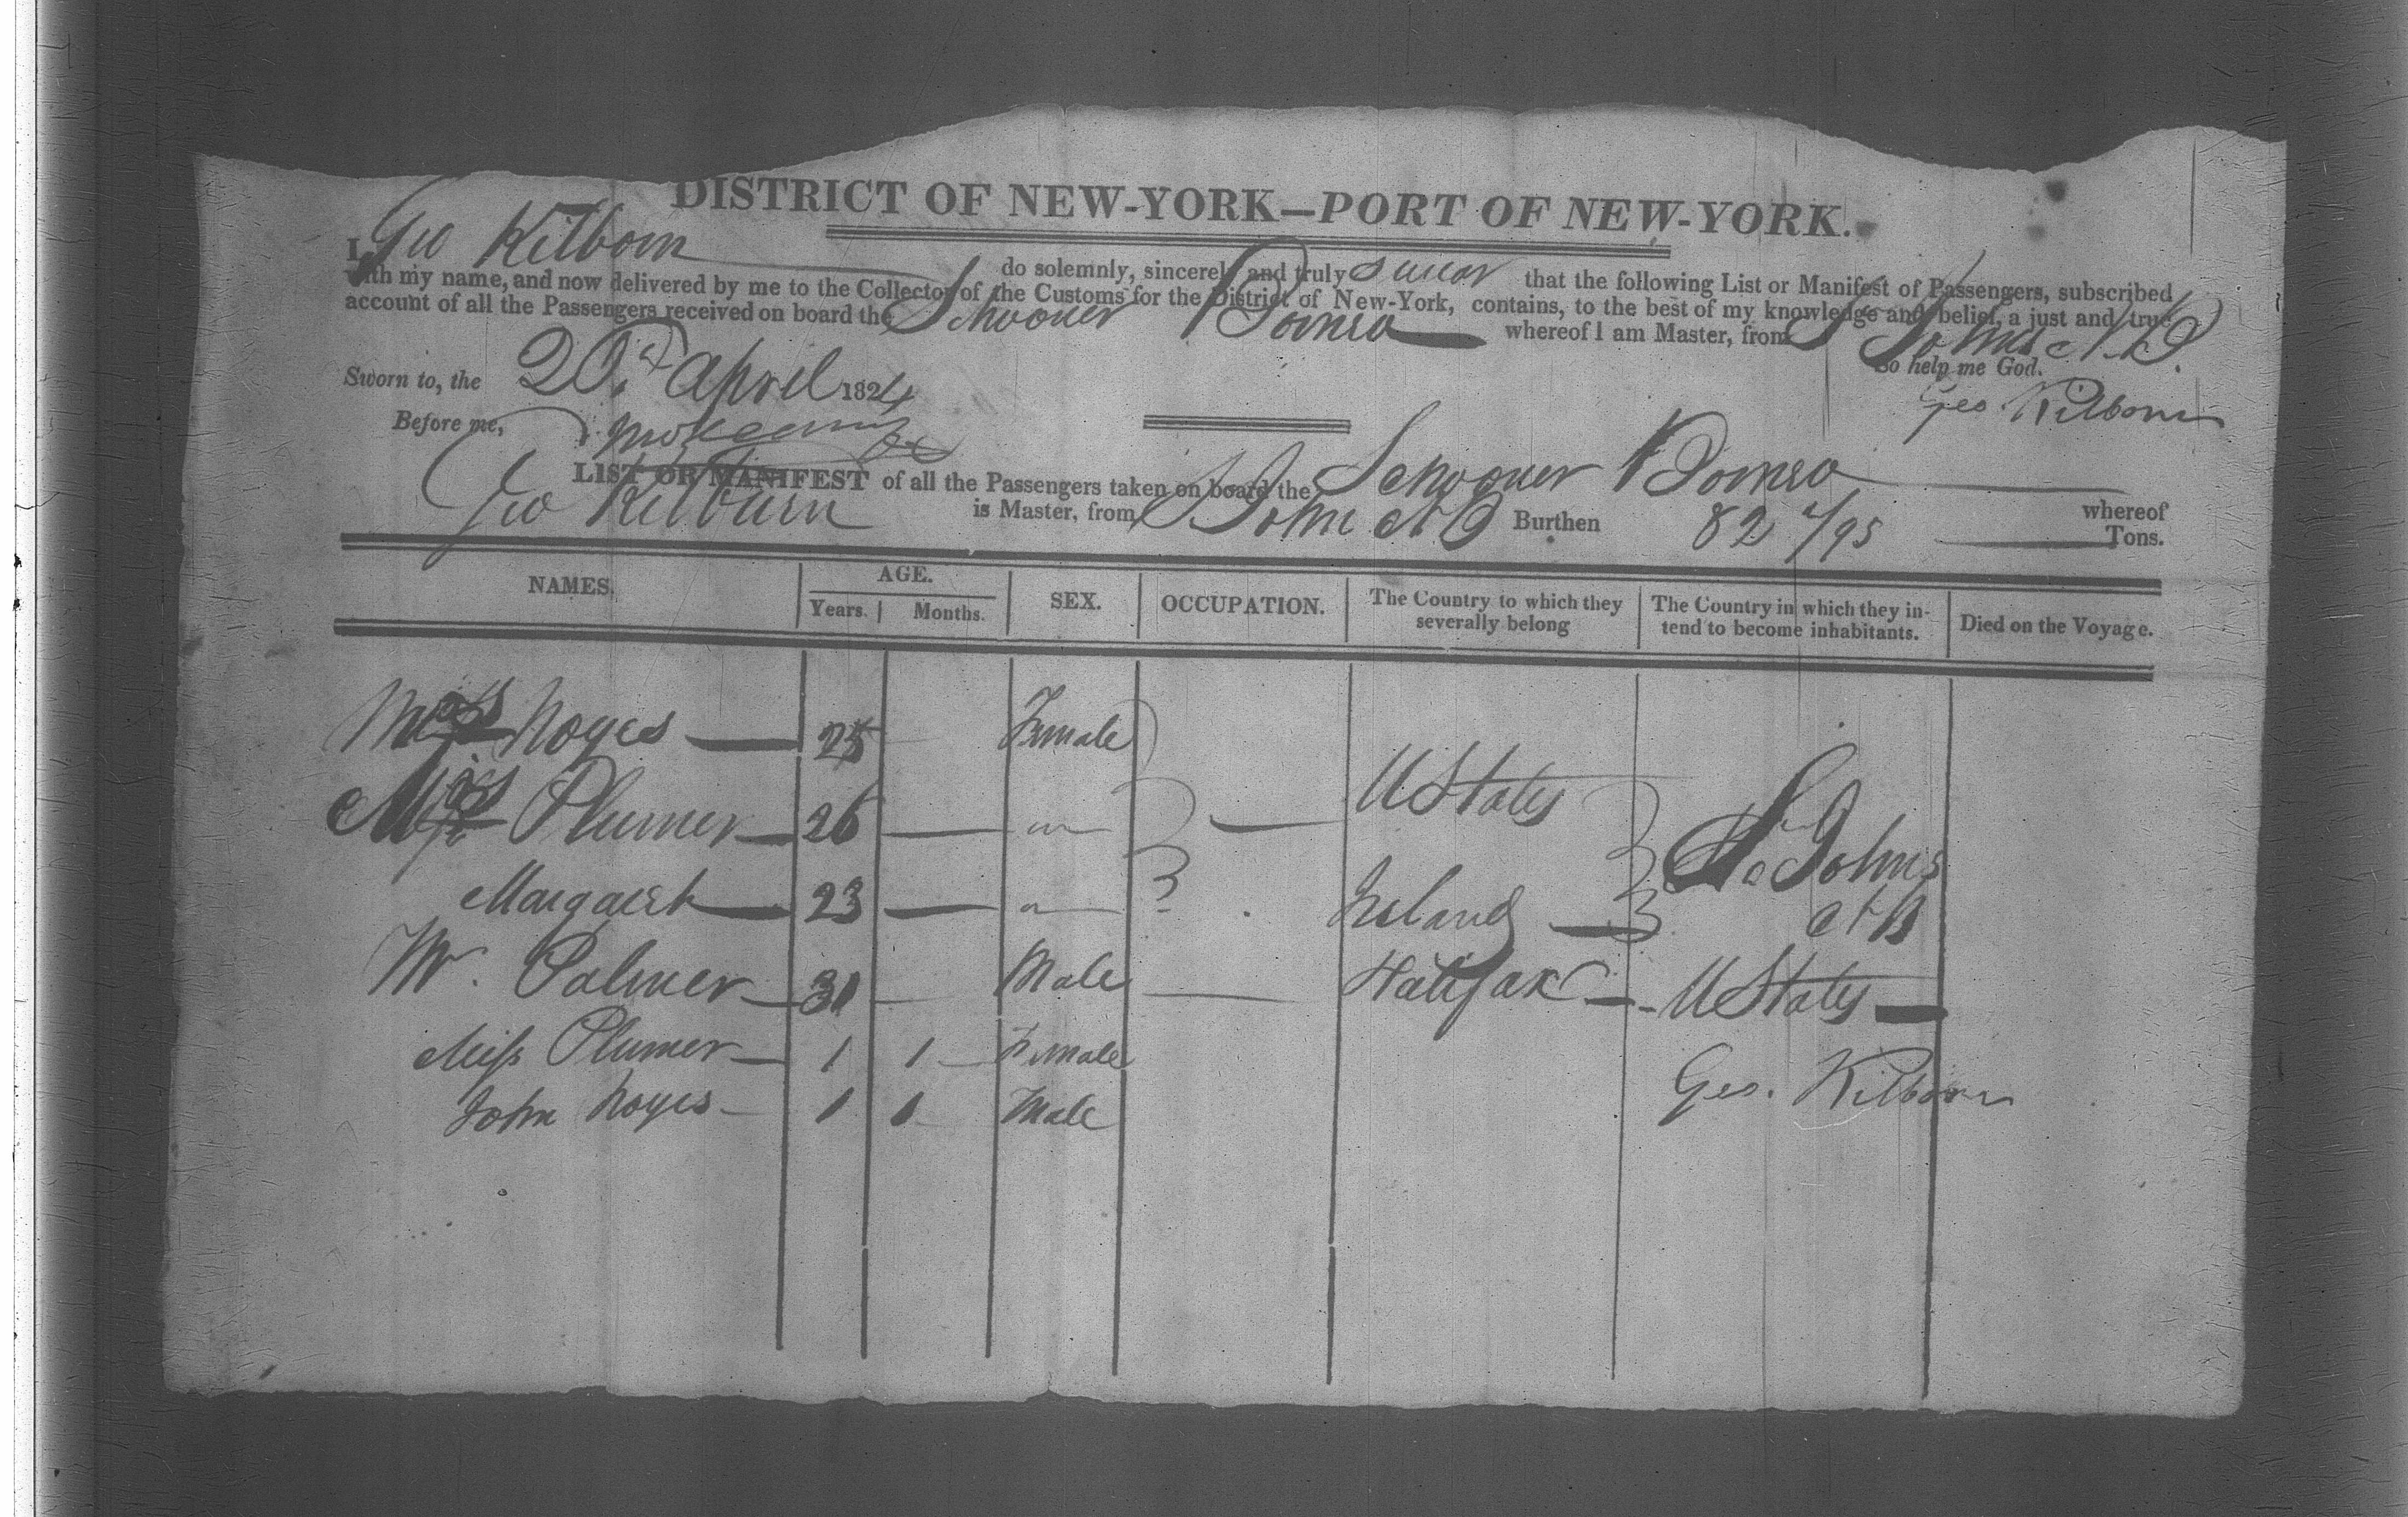 DISTRICT OF NEW-YORK—PORT OF NEW-YORK.
I, Geo Kilborn do solemnly, sincerely and truly swear that the following List or Manifest of Passengers, subscribed
with my name, and now delivered by me to the Collector of the Customs for the District of New-York, contains, to the best of my knowledge and belief, a just and true
account of all the Passengers received on board the Schooner Borneo whereof I am Master, from St Johns N.B.
So help me God.
Sworn to, the 20th April 1824
Geo. Kilborn
Before me,
LIST OR MANIFEST of all the Passengers taken on board the Schooner Borneo whereof
Geo Kilburn is Master, from St John NB Burthen 82 4/95 Tons.
NAMES. AGE. SEX. OCCUPATION. The Country to which they severally belong The Country in which they intend to become inhabitants. Died on the Voyage.
Years. Months.
Mrs Noyes — 25 Female
Mrs Plumer — 26 — " — U States St Johns
Margaret — 23 — " Ireland — NB
Mr. Palmer — 31 — Male — Halifax — U States —
Miss Plumer — 1 1 — Female
John Noyes — 1 1 Male
Geo. Kilborn